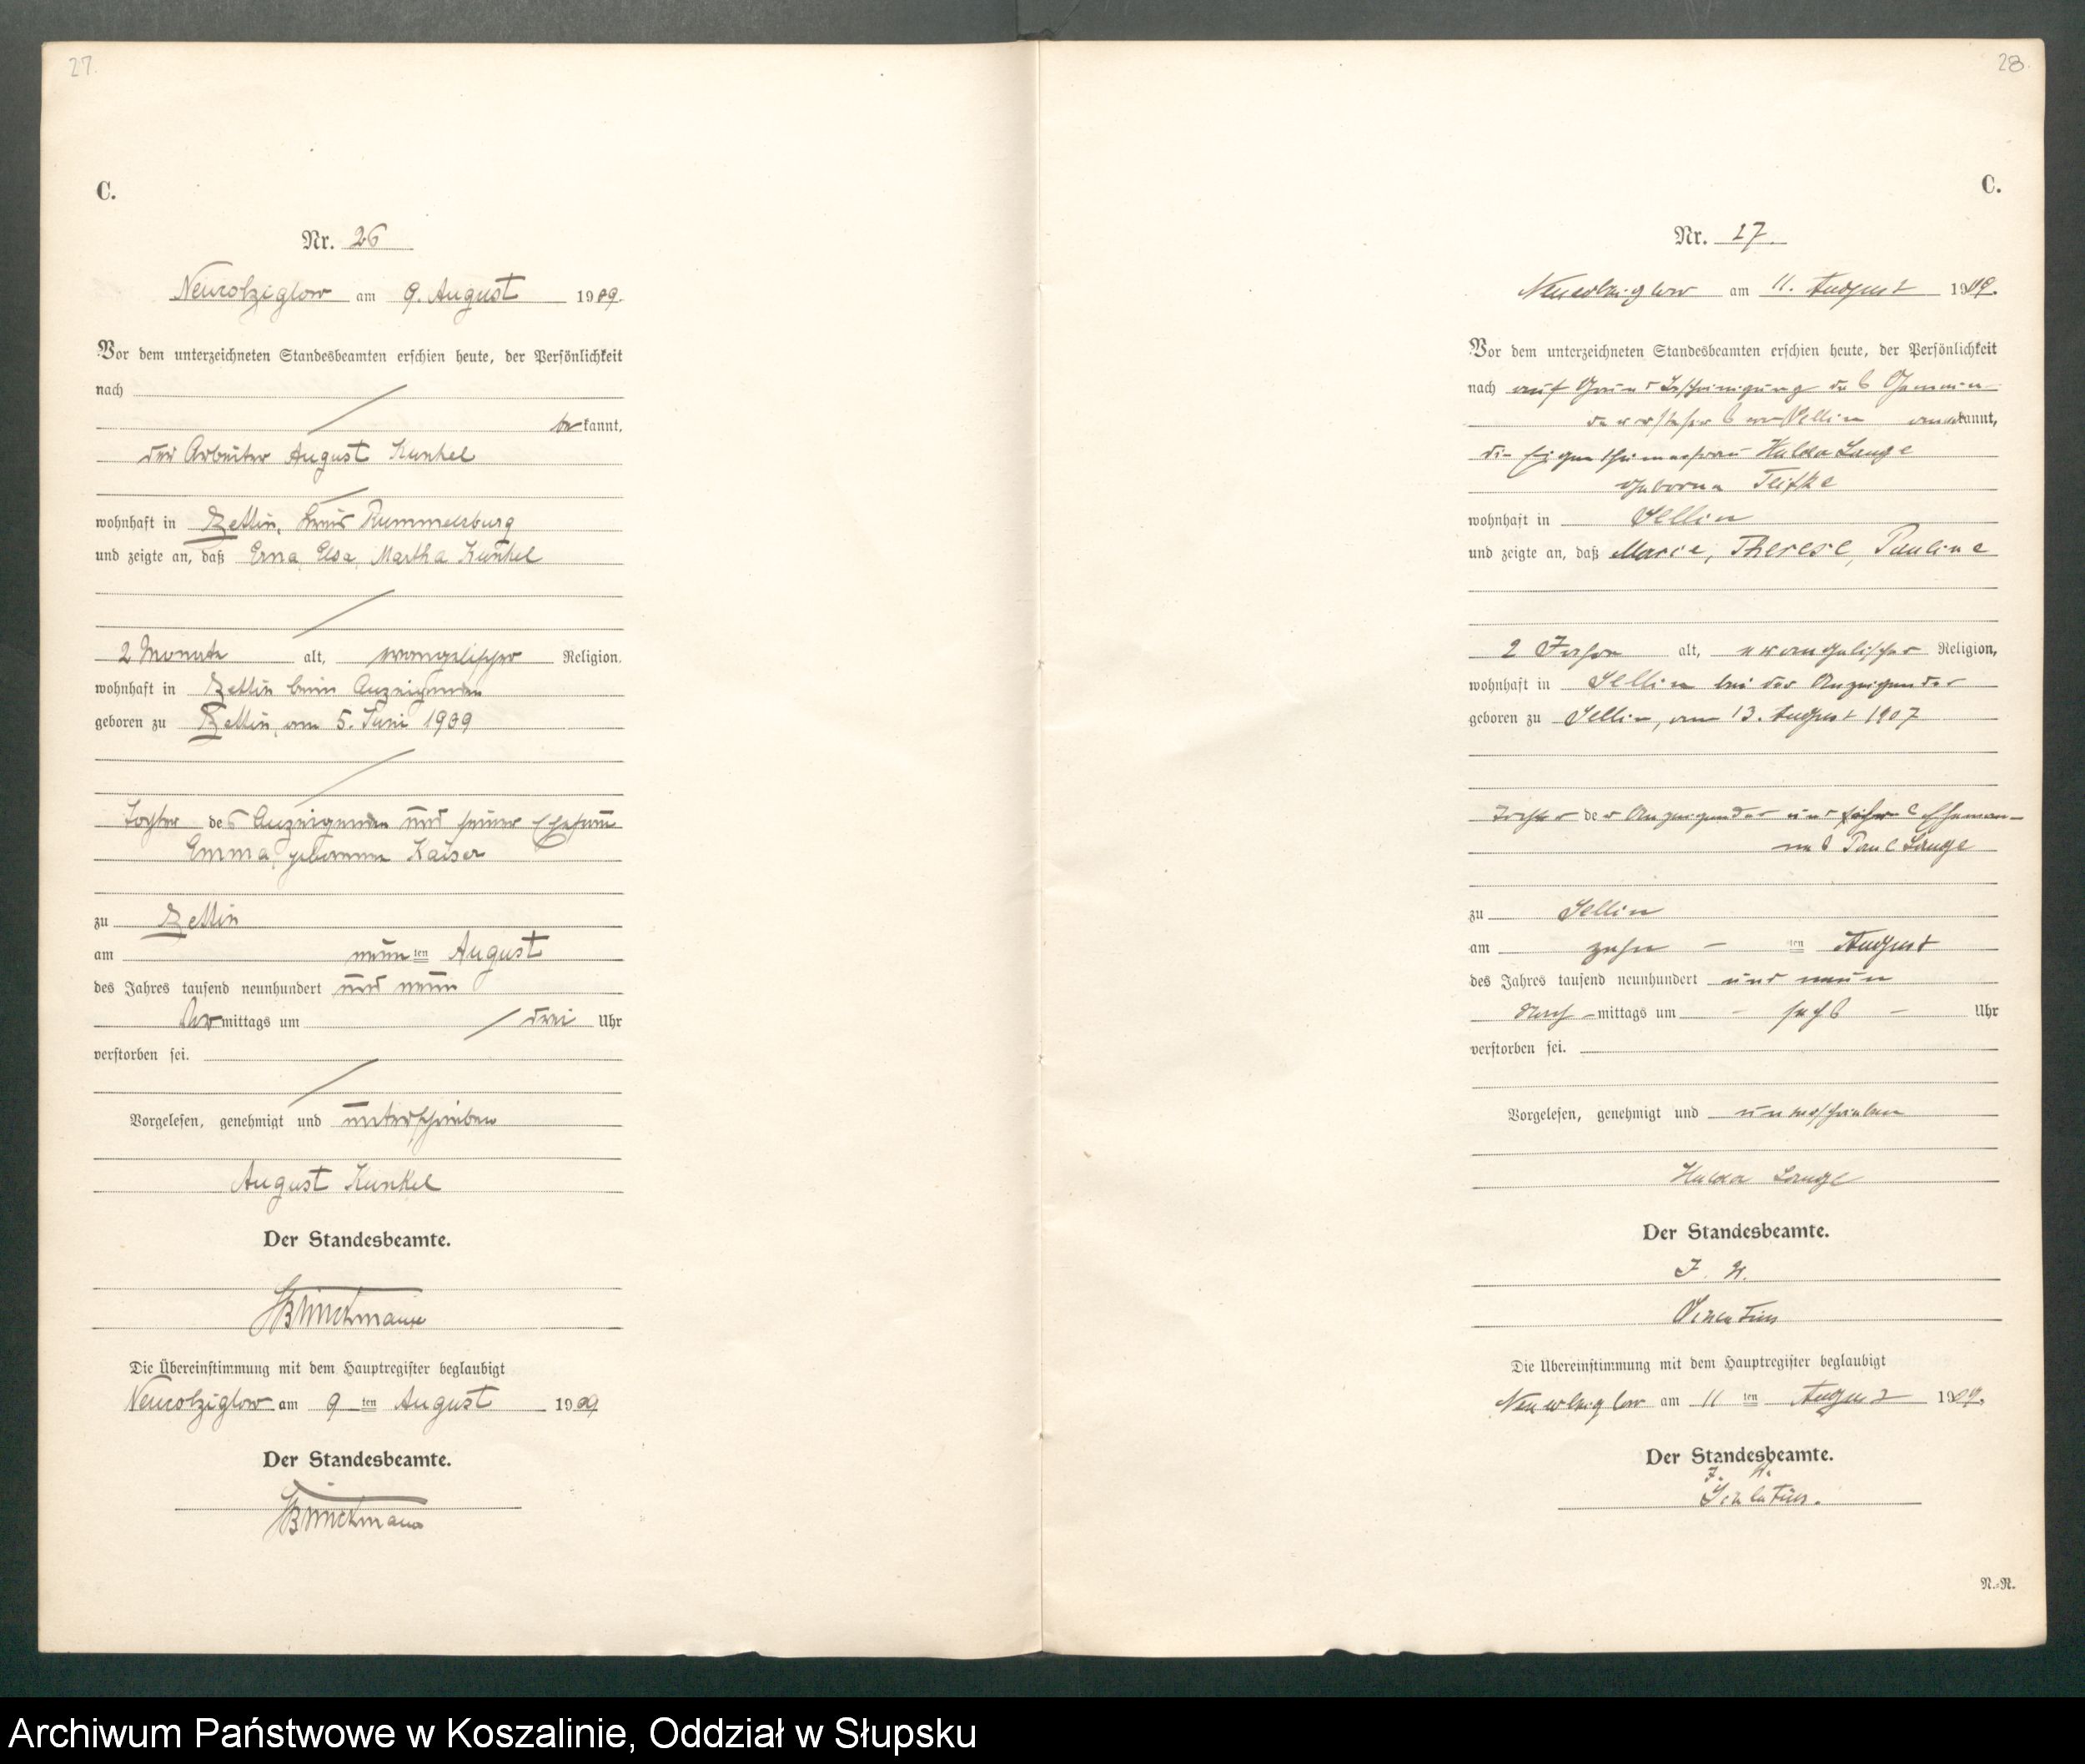 27.
C.
Nr. 26
Neukolziglow am 9. August 1909.
Vor dem unterzeichneten Standesbeamten erschien heute, der Persönlichkeit
nach
bekannt,
der Arbeiter August Kunkel
wohnhaft in Zettin, Kreis Rummelsburg
und zeigte an, daß Erna Elsa Martha Kunkel
2 Monate alt, evangelischer Religion,
wohnhaft in Zettin beim Anzeigenden
geboren zu Zettin, am 5. Juni 1909
Tochter des Anzeigenden und seiner Ehefrau
Emma, geborenen Kaiser
zu Zettin
am neunten August
des Jahres tausend neunhundert und neun
Vormittags um drei Uhr
verstorben sei.
Vorgelesen, genehmigt und unterschrieben
August Kunkel
Der Standesbeamte.
Brinckmann
Die Übereinstimmung mit dem Hauptregister beglaubigt
Neukolziglow am 9 ten August 1909
Der Standesbeamte.
Brinckmann
28.
C.
Nr. 27.
Neukolziglow am 11. August 1909.
Vor dem unterzeichneten Standesbeamten erschien heute, der Persönlichkeit
nach auf Grund Bescheinigung des Gemein-
devorstehers von Sellin anerkannt,
die Eigenthümerfrau Hulda Lange
geborene
wohnhaft in Sellin
und zeigte an, daß Marie, Therese, Pauline
2 Jahre alt, evangelischer Religion,
wohnhaft in Sellin bei der Anzeigender
geboren zu Sellin, am 13. August 1907
Tochter der Anzeigender und ihres Eheman-
nes Paul Lange
zu Sellin
am zehn – ten August
des Jahres tausend neunhundert und neun
Nach-mittags um – sechs – Uhr
verstorben sei.
Vorgelesen, genehmigt und unterschrieben
Hulda Lange
Der Standesbeamte.
J. V.
Die Übereinstimmung mit dem Hauptregister beglaubigt
Neukolziglow am 11 ten August 1909.
Der Standesbeamte.
J. V.
N.-N.
Archiwum Państwowe w Koszalinie, Oddział w Słupsku